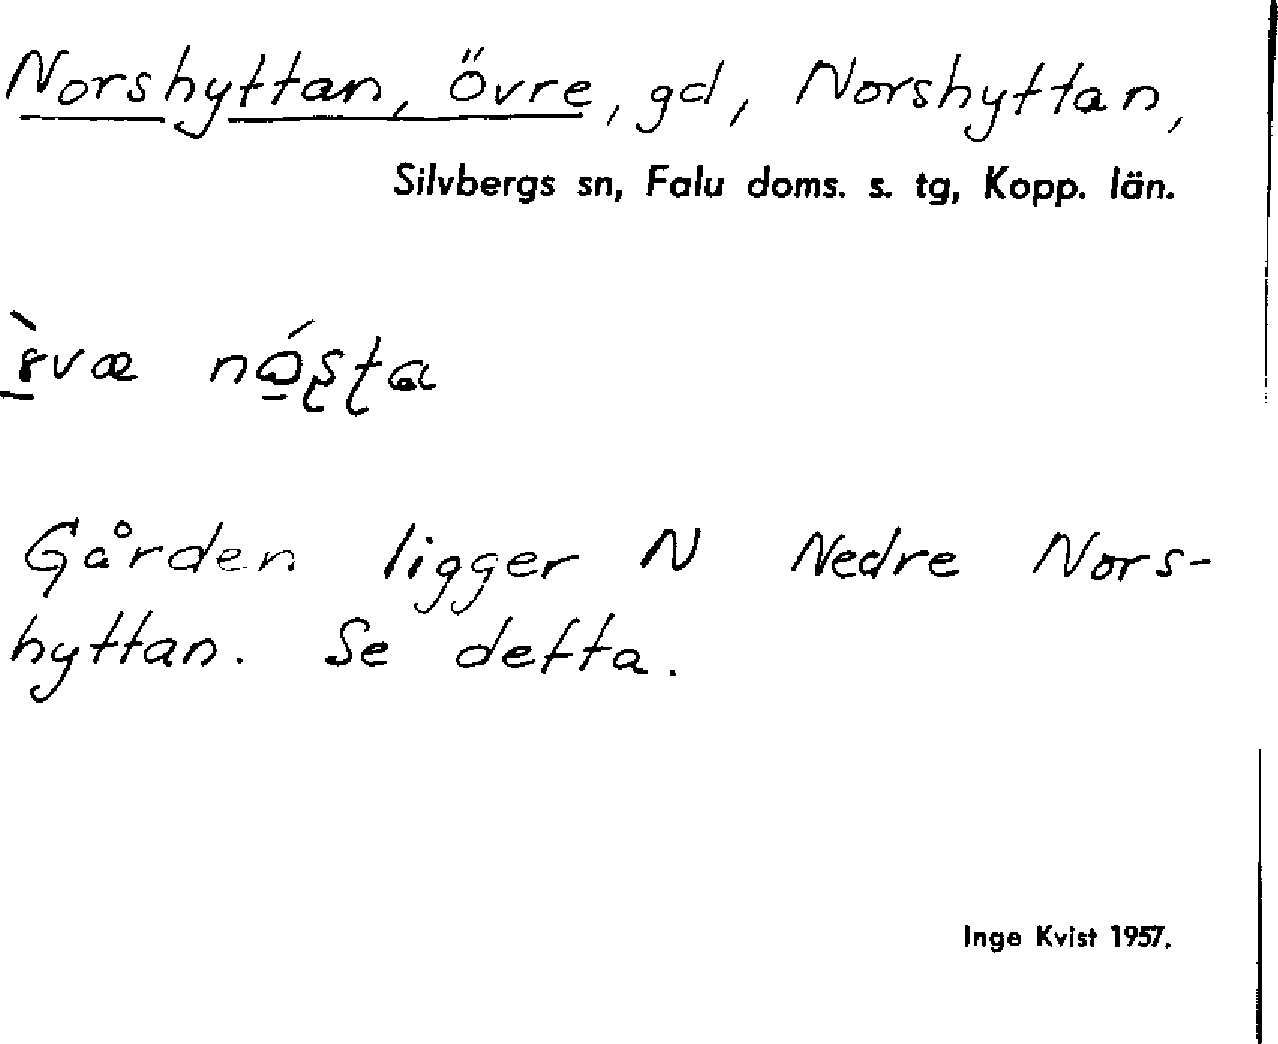 Norshyttan, Övre, gd, Norshyttan,
Silvbergs sn, Falu doms. s. tg, Kopp. län.
Gården ligger N Nedre Nors-
hyttan. Se detta.
Inge Kvist 1957.